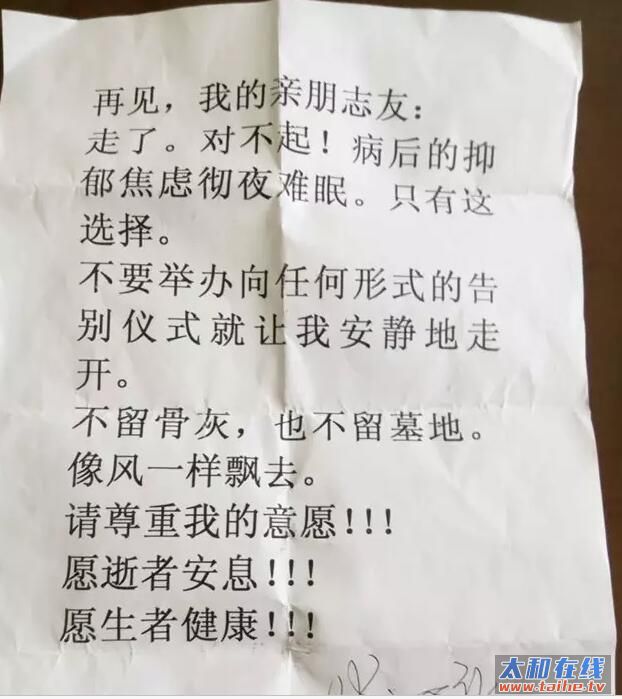 再见，我的亲朋志友：
走了。对不起！病后的抑
郁焦虑彻夜难眠。只有这
选择。
不要举办向任何形式的告
别仪式就让我安静地走
开。
不留骨灰，也不留墓地。
像风一样飘去。
请尊重我的意愿！！！
愿逝者安息！！！
愿生者健康！！！
太和在线
www.taihe.tv